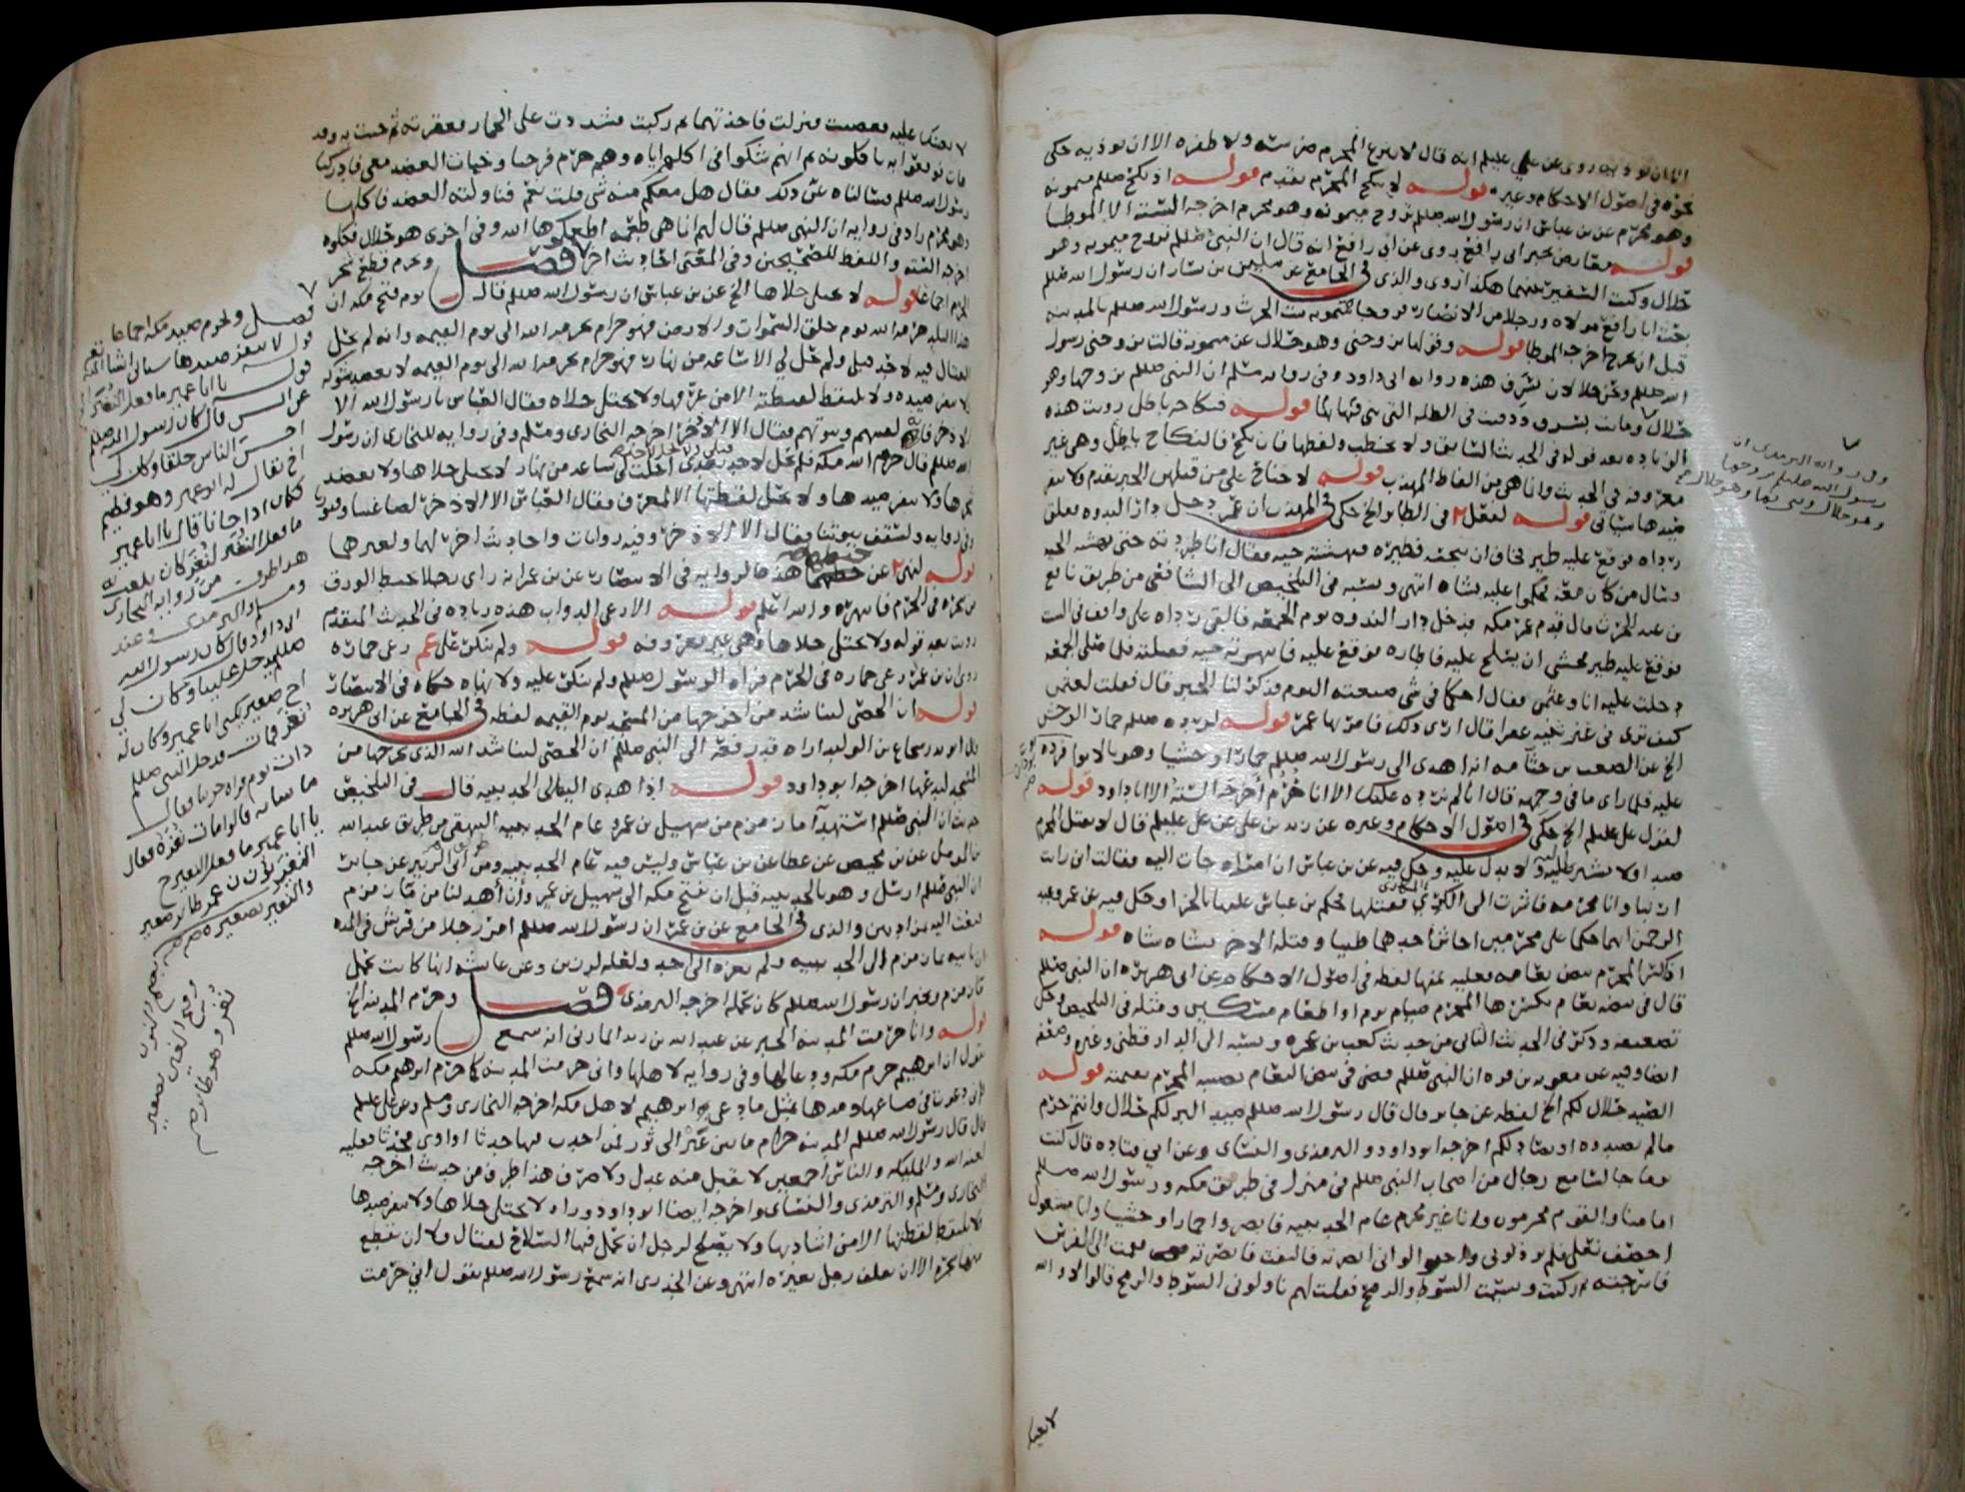 اذا ان تؤذيه روى عن علي عليلم انه قال لا ينزع المحرم ضرسه ولا ظفره الا ان يؤذيه حكى
نحوه في اصول الاحكام وغيره قوله لا ينكح المحرم تقدم قوله اذ نكح صللم ميمونه
وهو محرم عن بن عباس ان رسول الله صللم تزوج ميمونه وهو محرم اخرجه الستة الا الموطا
قوله معارض بخبر ابي رافع روى عن ابي رافع انه قال ان النبي صللم تزوج ميمونه وهو
حلال وكنت السفير بينهما هكذا روي والذي في الجامع عن سليمن بن يسار ان رسول الله صللم
بعث ابا رافع مولاه ورجلا من الانصار فزوجاه ميمونه بنت الحرث ورسول الله صللم بالمدينه
قبل ان يخرج اخرجه الموطا قوله وقولها تزوجني وهو حلال عن ميمونة قالت تزوجني رسول
الله صللم ونحن حلالان بسرف هذه روايه ابي داود وفي روايه مسلم ان النبي صللم تزوجها وهو
حلال وماتت بسرف ودفنت في الظلة التي بنى فيها بها قوله فنكاحه باطل رويت هذه
الزياده بعد قوله في الحديث السابق ولا يخطب ولفظها فان نكح فالنكاح باطل وهي غير
معروفه في الحديث وانما هي من الفاظ المهذب قوله لا جناح على من قتلهن الخبر تقدم ولا ينفر
صيدها سياتي قوله لفعل ٢ في الطاير الخ حكى في المهذب ان عمر دخل دار الندوه فعلق
رداه فوقع عليه طير فخاف ان ينجسه فطيره فنهشته حيه فقال انا طردته حتى نهشته الحيه
وسال من كان معه فحكموا عليه بشاه انتهى ونسبه في التلخيص الى الشافعي من طريق نافع
بن عبد الحرث قال قدم عمر مكه فدخل دار الندوه يوم الجمعه فالقى رداه على واقف في البيت
فوقع عليه طير فخشي ان يسلح عليه فاطاره فوقع عليه فانتهزته حيه فقتلته فلما صلى الجمعه
دخلت عليه انا وعثمن فقال احكما في شي صنعته اليوم فذكر لنا الخبر قال فقلت لعثمن
كيف ترى في عنز ثنيه عفرا قال ارى ذلك فامر بها عمر قوله لرده صللم حمار الوحش
الخ عن الصعب بن جثامه انه اهدى الى رسول الله صللم حمارا وحشيا وهو بالابوا فرده
عليه فلما راى ما في وجهه قال انا لم نرده عليك الا انا حُرُم اخرجه الستة الا ابا داود قوله
لقول علي عليلم الخ حكى في اصول الاحكام وغيره عن زيد بن علي عن علي عليلم قال لا يقتل المحرم
صيدا ولا يشير اليه ولا يدل عليه وحكى فيه عن بن عباس ان امراه جات اليه فقالت اني رايت
ارنبا وانا محرمه فاشرت الى الكري فقتلها فحكم بن عباس عليها بالجزا وحكى فيه عن عمر وعبد
الرحمن انهما حكما على محرمين احاش احدهما ظبيا وقتله الاخر بشاه شاه قوله
اذا كسر المحرم بيض نعامه فعليه ثمنها لفظه في اصول الاحكام عن ابي هريره ان النبي صللم
قال في بيضه نعام يكسرها المحرم صيام يوم او اطعام مسكين ومثله في التلخيص وحكى
تضعيفه وذكر في الحديث الثاني من حديث كعب بن عجره ونسبه الى الدارقطني وغيره وضعفه
ايضا وفيه عن معويه بن قره ان النبي صللم قضى في بيض النعام يصيبه المحرم بقيمته قوله
الصيد حلال لكم الخ لفظه عن جابر قال قال رسول الله صللم صيد البر لكم حلال وانتم حرم
ما لم تصيدوه او يصاد لكم اخرجه ابو داود والترمذي والنسائي وعن ابي قتاده قال كنت
يوما جالسا مع رجال من اصحاب النبي صللم في منزل في طريق مكه ورسول الله صللم
امامنا والقوم محرمون وانا غير محرم عام الحديبيه فابصروا حمارا وحشيا وانا مشغول
اخصف نعلي فلم يؤذنوني واحبوا لو اني ابصرته فالتفت فابصرته فقمت الى الفرس
فاسرجته ثم ركبت ونسيت السوط والرمح فقلت لهم ناولوني السوط والرمح قالوا لا والله
لا نعينك
وفي روايه الترمذي ان
رسول الله صللم تزوجها
وهو حلال وبنى بها وهو حلال
لا نعينك عليه فغضبت فنزلت فاخذتهما ثم ركبت فشددت على الحمار فعقرته ثم جيت به وقد
مات فوقعوا به ياكلونه ثم انهم شكوا في اكلهم اياه وهم حرم فرحنا وخبات العضد معي فادركنا
رسول الله صللم فسالناه عن ذلك فقال هل معكم منه شي قلت نعم فناولته العضد فاكلها
وهو محرم زاد في روايه ان النبي صللم قال لهم انما هي طعمه اطعمكموها الله وفي اخرى هو حلال فكلوه
اخرجه الستة واللفظ للصحيحين وفي المعنى احاديث اخر فصل ويحرم قطع شجر
الحرم اجماعا قوله لا يختلى خلاها الخ عن بن عباس ان رسول الله صللم قال يوم فتح مكه ان
هذا البلد حرمه الله يوم خلق السموات والارض فهو حرام بحرمه الله الى يوم القيمه وانه لم يحل
القتال فيه لاحد قبلي ولم يحل لي الا ساعه من نهار فهو حرام بحرمه الله الى يوم القيمه لا يعضد شوكه
ولا ينفر صيده ولا يلتقط لقطته الا من عرفها ولا يختلى خلاه فقال العباس يا رسول الله الا
الاذخر فانه لقينهم وبيوتهم فقال الا الاذخر اخرجه البخاري ومسلم وفي روايه للبخاري ان رسول
الله صللم قال حرم الله مكه فلم تحل لاحد بعدي احلت لي ساعه من نهار لا يختلى خلاها ولا يعضد
شجرها ولا ينفر صيدها ولا تحل لقطتها الا لمعرف فقال العباس الا الاذخر لصاغتنا وقبورنا
وفي روايه ولسقف بيوتنا فقال الا الاذخر وفيه روايات واحاديث اخر لهما ولغيرهما
قوله لنهي ٢ عن خبطهما هذه الروايه في الانتصار عن بن عمر انه راى رجلا يخبط الورق
من شجره في الحرم فانتهره والله اعلم قوله الا رعي الدواب هذه زياده في الحديث المتقدم
رويت بعد قوله ولا يختلى خلاها وهي غير معروفه قوله ولم ينكر على عمر رعي حماره
روي ان بن عمر رعى حماره في الحرم فراه الرسول صللم ولم ينكر عليه ولا نهاه حكاه في الانتصار
قوله ان الحصى ليناشد من اخرجها من المسجد يوم القيمه لفظه في الجامع عن ابي هريره
قال ابو بدر شجاع بن الوليد اراه قد رفعه الى النبي صللم ان الحصى ليناشد الله الذي يخرجها من
المسجد ليدعها اخرجه ابو داود قوله اذا هدي اليه الى الحديبيه قال في التلخيص
حديث ان النبي صللم استهدى ما زمزم من سهيل بن عمرو عام الحديبيه البيهقي من طريق عبد الله
بن المومل عن بن محيصن عن عطا عن بن عباس وليس فيه عام الحديبيه ومن ابي الزبير عن جابر
ان النبي صللم ارسل وهو بالحديبيه قبل ان تفتح مكه الى سهيل بن عمرو ان أهد لنا من ما زمزم
فبعث اليه بمزادتين والذي في الجامع عن بن عمر ان رسول الله صللم امر رجلا من قريش في المده
ان ياتيه بما زمزم الى الحديبيه ولم يعزه الى احد ولعله لرزين وعن عايشه انها كانت تحمل
ما زمزم وتخبر ان رسول الله صللم كان يحمله اخرجه الترمذي فصل وحرم المدينه الخ
قوله وانا حرمت المدينه الخبر عن عبد الله بن زيد المازني انه سمع رسول الله صللم
يقول ان ابرهيم حرم مكه ودعا لها وفي روايه لاهلها واني حرمت المدينه كما حرم ابرهيم مكه
واني دعوت في صاعها ومدها بمثل ما دعى به ابرهيم لاهل مكه اخرجه البخاري ومسلم وعن علي عليلم
قال قال رسول الله صللم المدينه حرام ما بين عير الى ثور فمن احدث فيها حدثا او اوى محدثا فعليه
لعنه الله والمليكه والناس اجمعين لا يقبل منه عدل ولا صرف هذا طرف من حديث اخرجه
البخاري ومسلم والترمذي والنسائي واخرجه ايضا ابو داود وزاد ولا يختلى خلاها ولا ينفر صيدها
ولا يلتقط لقطتها الا من اشاد بها ولا يصلح لرجل ان يحمل فيها السلاح لقتال ولا ان يقطع
منها شجره الا ان يعلف رجل بعيره انتهى وعن الخدري انه سمع رسول الله صللم يقول اني حرمت
فصل ويحرم صيد مكه اجماعا
قوله لا ينفر صيدها سياتي ان شا الله تعالى
قوله يا ابا عمير ما فعل النغير
عن انس قال كان رسول الله صللم
احسن الناس خلقا وكان لي
اخ يقال له ابو عمير وهو فطيم
كان اذا جانا قال يا ابا عمير
ما فعل النغير لنغر كان يلعب به
هذا طرف من روايه البخاري
ومسلم والترمذي وعند
ابي داود قال كان رسول الله
صللم يدخل علينا وكان لي
اخ صغير يكنى ابا عمير وكان له
نغر فمات فدخل النبي صللم
ذات يوم فراه حزينا فقال
ما شانه قالوا مات نغره فقال
يا ابا عمير ما فعل النغير
النغير طائر صغير